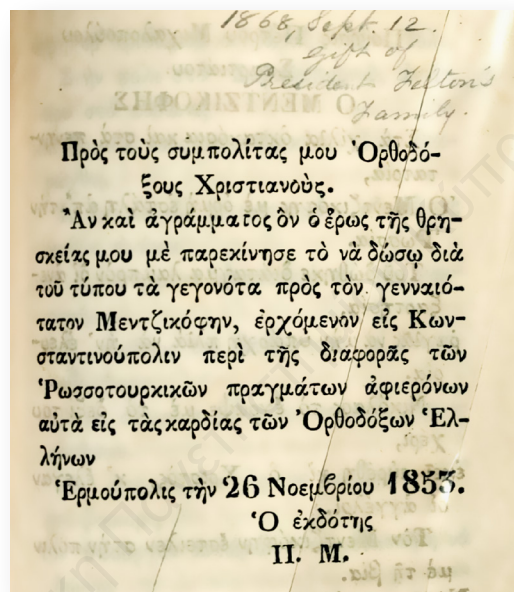 1868, Sept. 12.
Gift of
President Felton's
Family.
Πρὸς τοὺς συμπολίτας μου Ὀρθοδό-
ξους Χριστιανοὺς.
Ἂν καὶ ἀγράμματος ὂν ὁ ἔρως τῆς θρη-
σκείας μου μὲ παρεκίνησε τὸ νὰ δώσῳ διὰ
τοῦ τύπου τὰ γεγονότα πρὸς τὸν γενναιό-
τατον Μεντζικόφην, ἐρχόμενον εἰς Κων-
σταντινούπολιν περὶ τῆς διαφορᾶς τῶν
Ῥωσσοτουρκικῶν πραγμάτων ἀφιερόνων
αὐτὰ εἰς τὰς καρδίας τῶν Ὀρθοδόξων Ἑλ-
λήνων
Ἑρμούπολις τὴν 26 Νοεμβρίου 1853.
Ὁ ἐκδότης
Π. Μ.